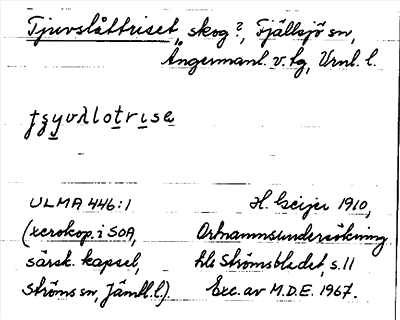 Tjuvslåttriset, skog?, Fjällsjö sn,
Ångermanl. v. tg, Vrnl. l.
ULMA 446:1
H. Geijer 1910,
(xerokop. i SOA,
Ortnamnsundersökning
särsk. kapsel,
Ströms sn, Jämtl. l.).
Strömsbladet s. 11
Exc. av M.D.E. 1967.